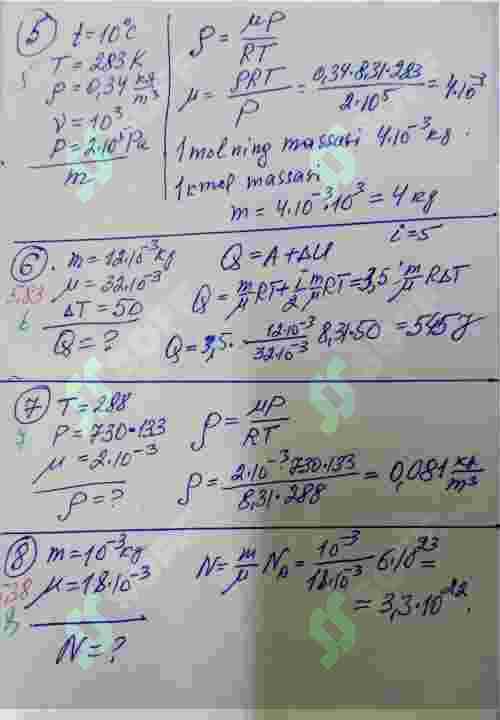 5 t=10°C
T=283K
ρ=0,34 кг/m³
ν=10³
P=2·10⁵Pa
m
ρ = μP/RT
μ = ρRT/P = 0,34·8,31·283/2·10⁵ = 4·10⁻³
1 molning massasi 4·10⁻³ kg.
1 kmol massasi
m = 4·10⁻³·10³ = 4 kg
6. m=12·10⁻³kg
5,83 μ=32·10⁻³
6 ΔT=50
Q=?
Q=A+ΔU i=5
Q = m/μ RT + i/2 m/μ RT = 3,5 · m/μ RΔT
Q=3,5 · 12·10⁻³/32·10⁻³ 8,31·50 = 545 J
7 T=288
7 P=730·133
μ=2·10⁻³
ρ=?
ρ = μP/RT
ρ = 2·10⁻³·730·133/8,31·288 = 0,081 кг/m³
8 m=10⁻³kg
μ=18·10⁻³
8
N=?
N= m/μ N_A = 10⁻³/18·10⁻³ 6·10²³ =
= 3,3·10²².